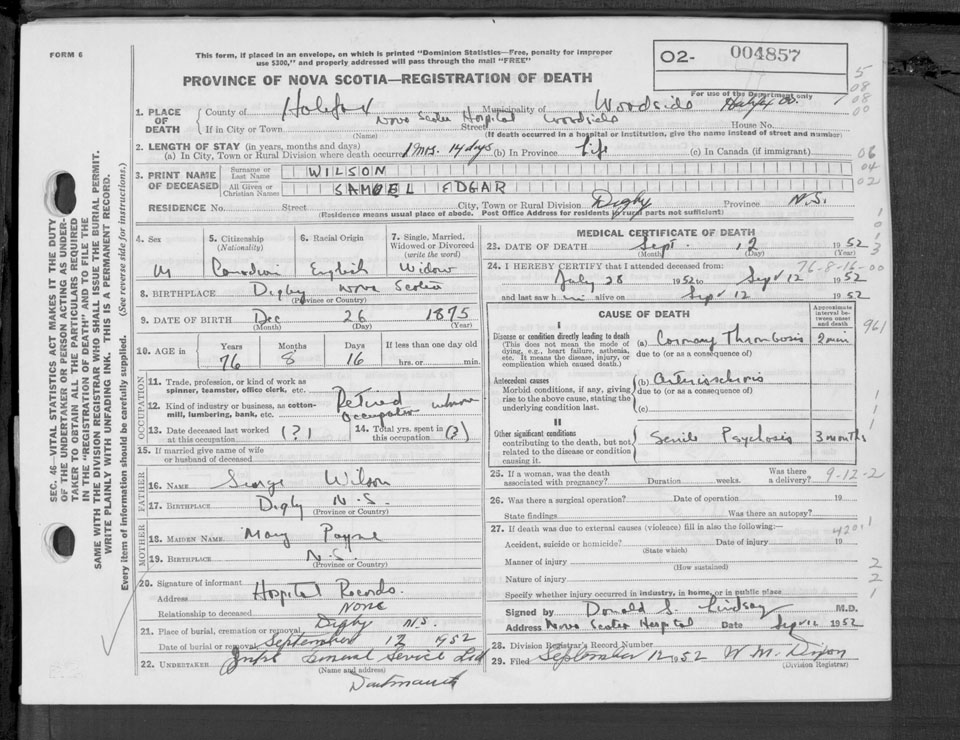 FORM 6
This form, if placed in an envelope, on which is printed "Dominion Statistics—Free, penalty for improper
use $300," and properly addressed will pass through the mail "FREE"
O2- 004857
PROVINCE OF NOVA SCOTIA—REGISTRATION OF DEATH
For use of the Department only
1. PLACE OF DEATH County of Halifax Municipality of Woodside Halifax Co.
If in City or Town Nova Scotia Hospital Woodside Street House No.
(Name) (If death occurred in a hospital or institution, give the name instead of street and number)
2. LENGTH OF STAY (in years, months and days)
(a) In City, Town or Rural Division where death occurred 1 Mos. 14 days (b) In Province Life (c) In Canada (if immigrant)
3. PRINT NAME OF DECEASED Surname or Last Name WILSON
All Given or Christian Names SAMUEL EDGAR
RESIDENCE No. Street City, Town or Rural Division Digby Province N.S.
(Residence means usual place of abode. Post Office Address for residents in rural parts not sufficient)
4. Sex 5. Citizenship (Nationality) 6. Racial Origin 7. Single, Married, Widowed or Divorced (write the word)
M Canadian English Widow
8. BIRTHPLACE Digby Nova Scotia
(Province or Country)
9. DATE OF BIRTH Dec 26 1875
(Month) (Day) (Year)
10. AGE in Years Months Days If less than one day old
76 8 16 hrs. or min.
OCCUPATION
11. Trade, profession, or kind of work as spinner, teamster, office clerk, etc.
12. Kind of industry or business, as cotton-mill, lumbering, bank, etc.
Retired
Occupation
13. Date deceased last worked at this occupation (?) 14. Total yrs. spent in this occupation (?)
15. If married give name of wife or husband of deceased
FATHER
16. NAME George Wilson
17. BIRTHPLACE Digby N.S.
(Province or Country)
MOTHER
18. MAIDEN NAME Mary Payne
19. BIRTHPLACE N.S.
(Province or Country)
20. Signature of informant Hospital Records.
Address
Relationship to deceased None
21. Place of burial, cremation or removal Digby N.S.
Date of burial or removal September 12 1952
22. UNDERTAKER General Service Ltd
(Name and address)
Dartmouth
MEDICAL CERTIFICATE OF DEATH
23. DATE OF DEATH Sept. 12 1952
(Month) (Day) (Year)
76-8-16-00
24. I HEREBY CERTIFY that I attended deceased from:
July 28 1952 to Sept 12 1952
and last saw him alive on Sept 12 1952
CAUSE OF DEATH
Approximate interval between onset and death
I
Disease or condition directly leading to death
(This does not mean the mode of dying, e.g., heart failure, asthenia, etc. It means the disease, injury, or complication which caused death.)
(a) Coronary Thrombosis 2 min
due to (or as a consequence of)
Antecedent causes
Morbid conditions, if any, giving rise to the above cause, stating the underlying condition last.
(b) Arteriosclerosis
due to (or as a consequence of)
(c)
II
Other significant conditions
contributing to the death, but not related to the disease or condition causing it.
Senile Psychosis 3 months
25. If a woman, was the death associated with pregnancy? Duration weeks. Was there a delivery?
9-12-2
26. Was there a surgical operation? Date of operation 19
State findings Was there an autopsy?
27. If death was due to external causes (violence) fill in also the following:—
Accident, suicide or homicide? Date of injury 19
(State which)
Manner of injury
(How sustained)
Nature of injury
Specify whether injury occurred in industry, in home, or in public place
Signed by Donald S. Lindsay M.D.
Address Nova Scotia Hospital Date Sept 12 1952
28. Division Registrar's Record Number
29. Filed September 12 1952 W M. Dixon
(Division Registrar)
SEC. 46—VITAL STATISTICS ACT MAKES IT THE DUTY
OF THE UNDERTAKER OR PERSON ACTING AS UNDER-
TAKER TO OBTAIN ALL THE PARTICULARS REQUIRED
IN THE "REGISTRATION OF DEATH" AND TO FILE THE
SAME WITH THE DIVISION REGISTRAR WHO SHALL ISSUE THE BURIAL PERMIT.
WRITE PLAINLY WITH UNFADING INK. THIS IS A PERMANENT RECORD.
Every item of information should be carefully supplied. (See reverse side for instructions.)
5
08
08
00
06
04
02
1
0
1
3
961
1
1
1
420.1
2
2
1